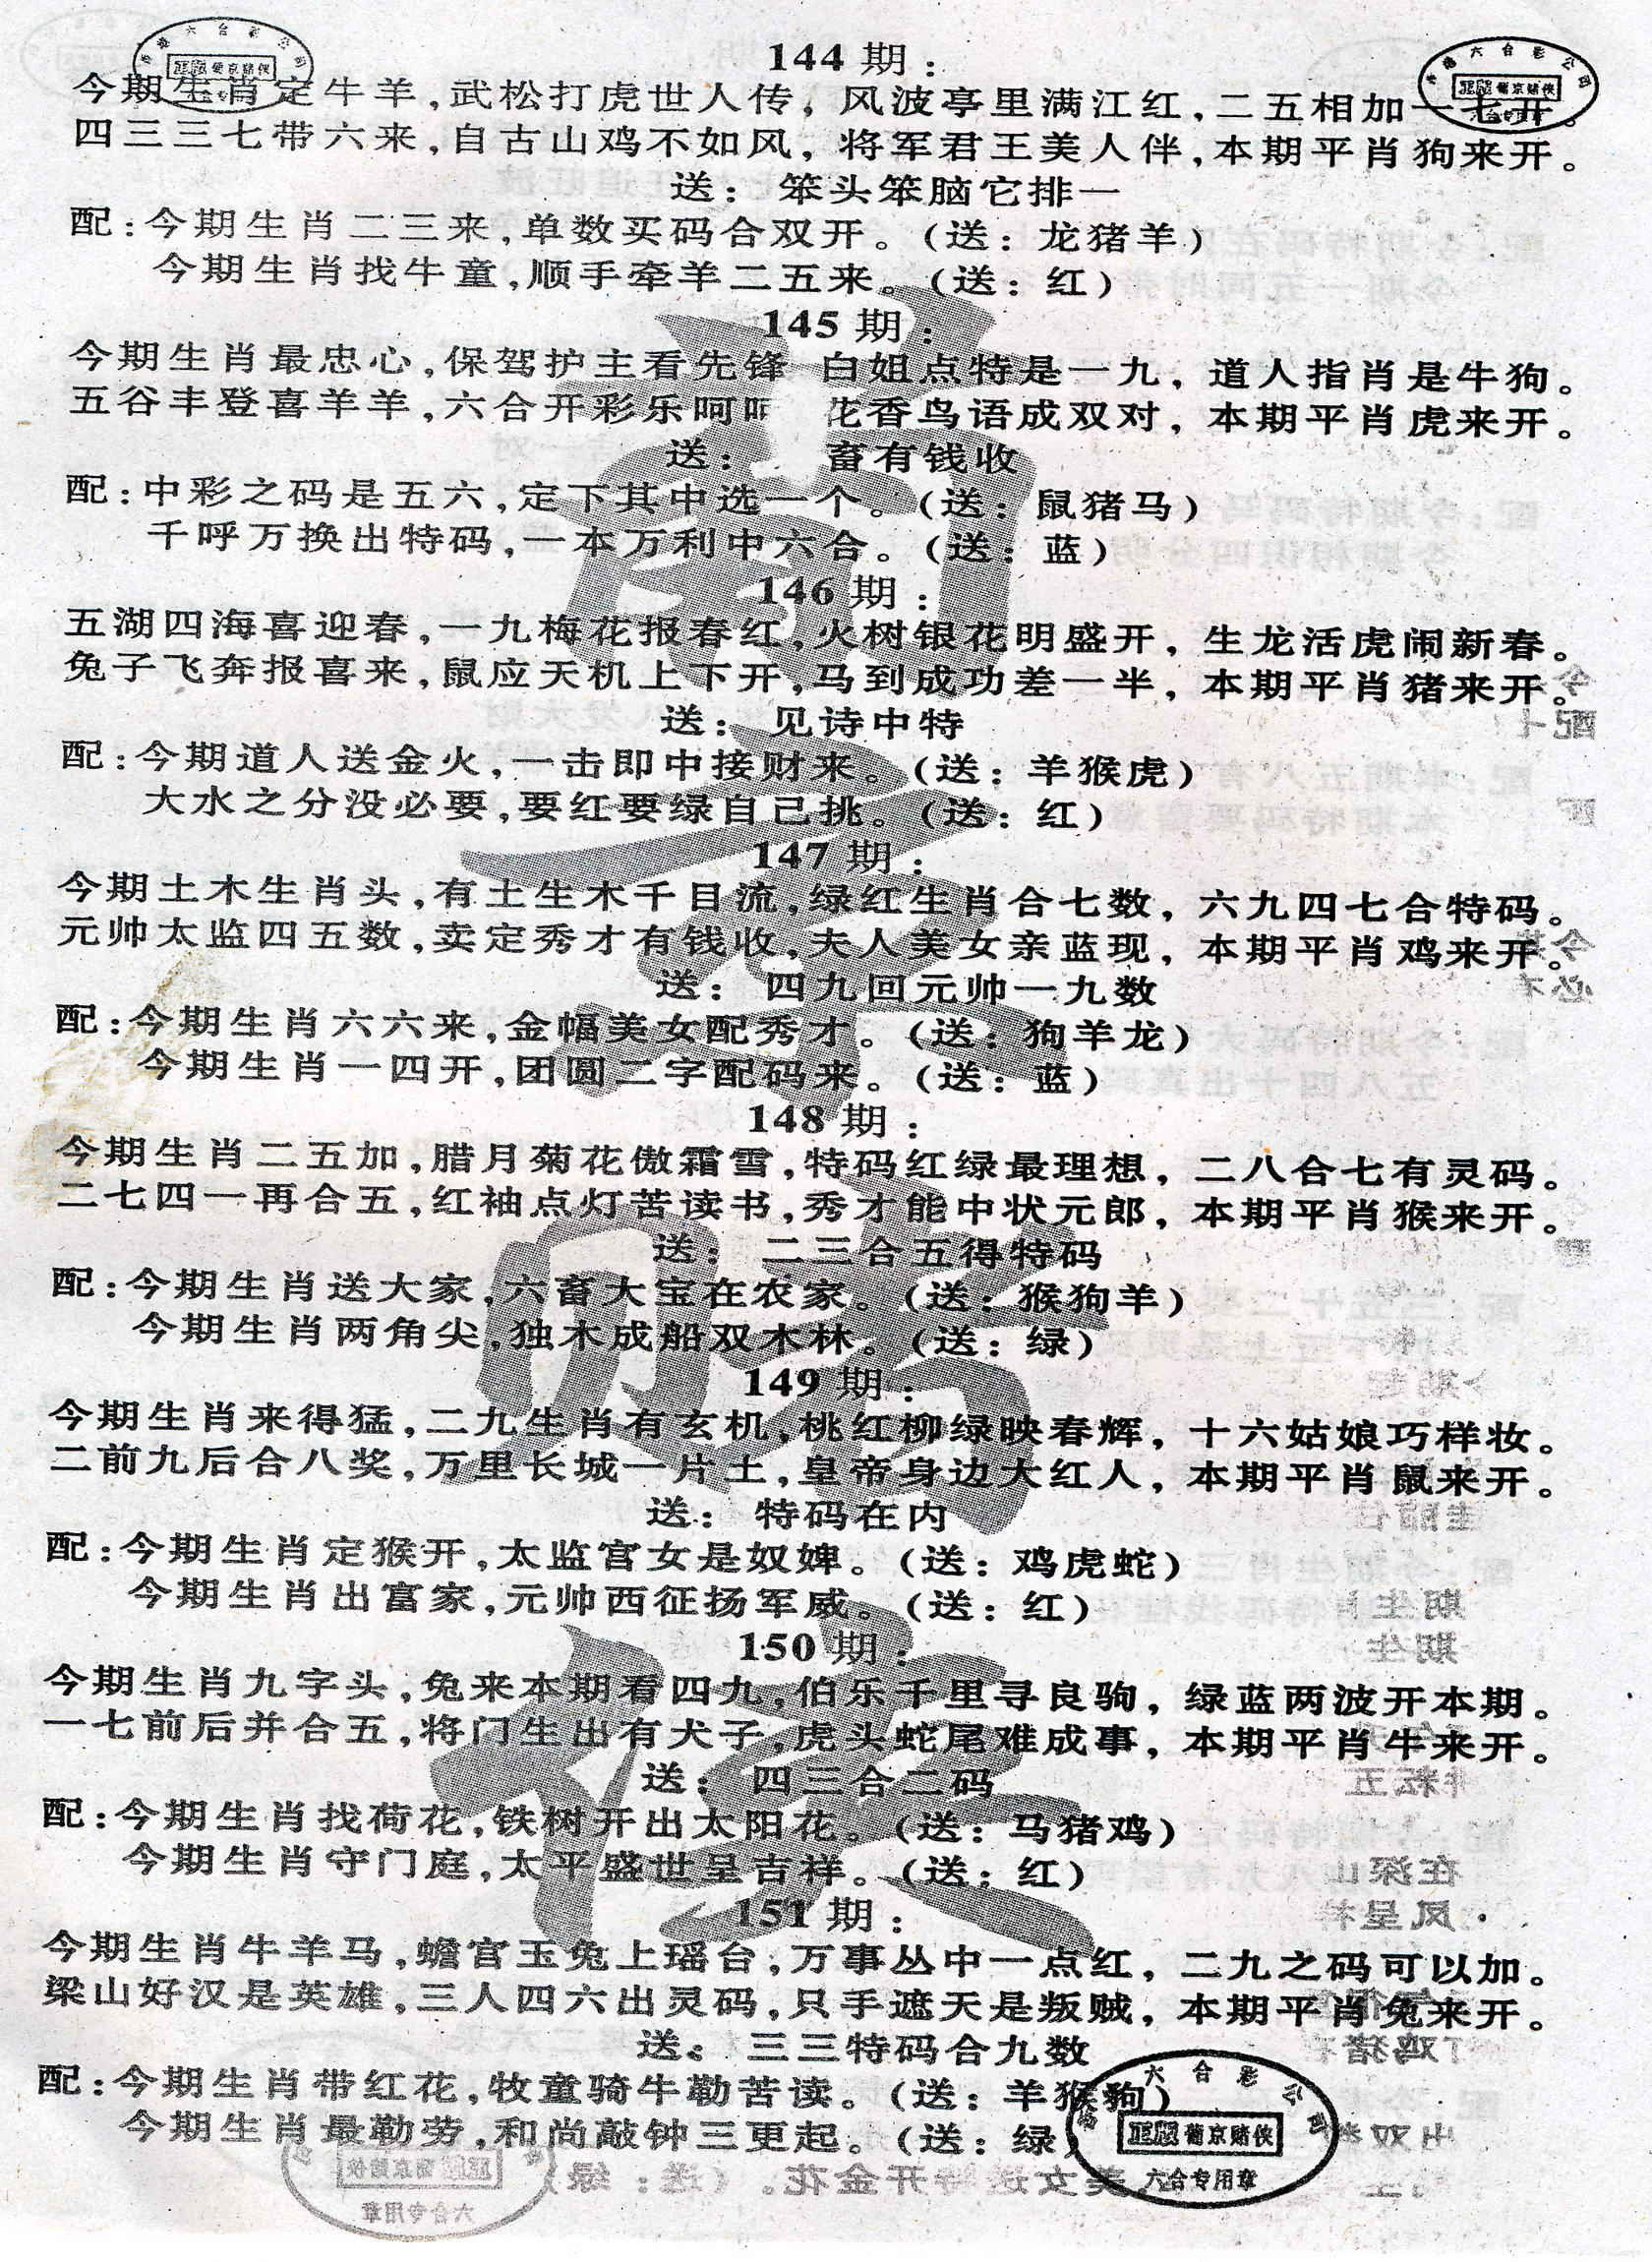 144期：
今期生肖定牛羊，武松打虎世人传，风波亭里满江红，二五相加一七开。
四三三七带六来，自古山鸡不如风，将军君王美人伴，本期平肖狗来开。
送：笨头笨脑它排一
配：今期生肖二三来，单数买码合双开。（送：龙猪羊）
今期生肖找牛童，顺手牵羊二五来。（送：红）
145期：
今期生肖最忠心，保驾护主看先锋 白姐点特是一九，道人指肖是牛狗。
五谷丰登喜羊羊，六合开彩乐呵 花香鸟语成双对，本期平肖虎来开。
送： 畜有钱收
配：中彩之码是五六，定下其中选一个。（送：鼠猪马）
千呼万换出特码，一本万利中六合。（送：蓝）
146期：
五湖四海喜迎春，一九梅花报春红，火树银花明盛开，生龙活虎闹新春。
兔子飞奔报喜来，鼠应天机上下开，马到成功差一半，本期平肖猪来开。
送：见诗中特
配：今期道人送金火，一击即中接财来。（送：羊猴虎）
大水之分没必要，要红要绿自己挑。（送：红）
147期：
今期土木生肖头，有土生木千目流，绿红生肖合七数，六九四七合特码。
元帅太监四五数，卖定秀才有钱收，夫人美女亲蓝现，本期平肖鸡来开。
送：四九回元帅一九数
配：今期生肖六六来，金幅美女配秀才。（送：狗羊龙）
今期生肖一四开，团圆二字配码来。（送：蓝）
148期：
今期生肖二五加，腊月菊花傲霜雪，特码红绿最理想，二八合七有灵码。
二七四一再合五，红袖点灯苦读书，秀才能中状元郎，本期平肖猴来开。
送：二三合五得特码
配：今期生肖送大家，六畜大宝在农家。（送：猴狗羊）
今期生肖两角尖，独木成船双木林。（送：绿）
149期：
今期生肖来得猛，二九生肖有玄机，桃红柳绿映春辉，十六姑娘巧样妆。
二前九后合八奖，万里长城一片土，皇帝身边大红人，本期平肖鼠来开。
送：特码在内
配：今期生肖定猴开，太监宫女是奴婢。（送：鸡虎蛇）
今期生肖出富家，元帅西征扬军威。（送：红）
150期：
今期生肖九字头，兔来本期看四九，伯乐千里寻良驹，绿蓝两波开本期。
一七前后并合五，将门生出有犬子，虎头蛇尾难成事，本期平肖牛来开。
送：四三合二码
配：今期生肖找荷花，铁树开出太阳花。（送：马猪鸡）
今期生肖守门庭，太平盛世呈吉祥。（送：红）
151期：
今期生肖牛羊马，蟾宫玉兔上瑶台，万事丛中一点红，二九之码可以加。
梁山好汉是英雄，三人四六出灵码，只手遮天是叛贼，本期平肖兔来开。
送：三三特码合九数
配：今期生肖带红花，牧童骑牛勒苦读。（送：羊猴狗）
今期生肖最勤劳，和尚敲钟三更起。（送：绿）
六合彩公司
正版 葡京赌侠
六合专用章
葡京赌侠